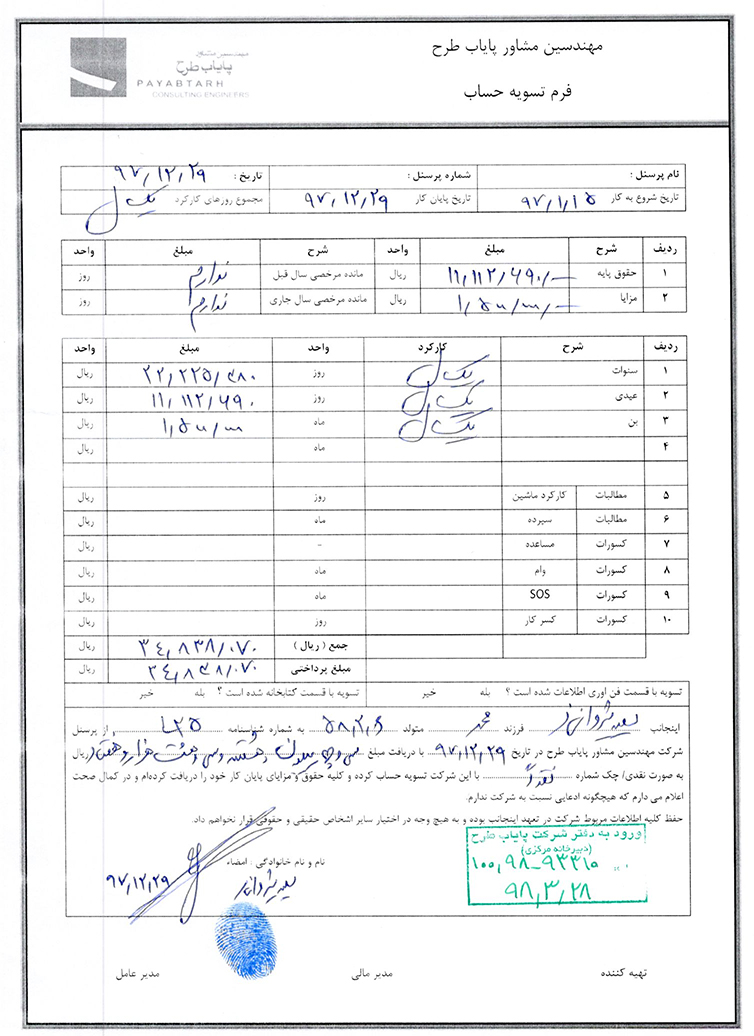 مهندسین مشاور پایاب طرح
فرم تسویه حساب
مهندسین مشاور
پایاب طرح
PAYABTARH
CONSULTING ENGINEERS
نام پرسنل : شماره پرسنل : تاریخ : ۹۷,۱۲,۲۹
تاریخ شروع به کار ۹۷,۱,۱۵ تاریخ پایان کار ۹۷,۱۲,۲۹ مجموع روزهای کارکرد
ردیف شرح مبلغ واحد شرح مبلغ واحد
۱ حقوق پایه ۱۱,۱۱۲,۶۹۰,- ریال مانده مرخصی سال قبل ندارم روز
۲ مزایا ریال مانده مرخصی سال جاری ندارم روز
ردیف شرح کارکرد واحد مبلغ واحد
۱ سنوات روز ریال
۲ عیدی روز ۱۱,۱۱۲,۶۹۰ ریال
۳ بن ماه ریال
۴ ماه ریال
۵ مطالبات کارکرد ماشین روز ریال
۶ مطالبات سپرده ماه ریال
۷ کسورات مساعده - ریال
۸ کسورات وام ماه ریال
۹ کسورات SOS ماه ریال
۱۰ کسورات کسر کار روز ریال
جمع ( ریال ) ۳٤,۸۳۸,۰۷۰ ریال
مبلغ پرداختی ۳٤,۸۳۸,۰۷۰ ریال
تسویه با قسمت فن اوری اطلاعات شده است ؟ بله خیر تسویه با قسمت کتابخانه شده است ؟ بله خیر
اینجانب فرزند محمد متولد به شماره شناسنامه از پرسنل
شرکت مهندسین مشاور پایاب طرح در تاریخ ۹۷,۱۲,۲۹ با دریافت مبلغ ریال
به صورت نقدی/ چک شماره نقداً با این شرکت تسویه حساب کرده و کلیه حقوق و مزایای پایان کار خود را دریافت کرده‌ام و در کمال صحت
اعلام می دارم که هیچگونه ادعایی نسبت به شرکت ندارم.
حفظ کلیه اطلاعات مربوط شرکت در تعهد اینجانب بوده و به هیچ وجه در اختیار سایر اشخاص حقیقی و حقوقی قرار نخواهم داد.
ورود به دفتر شرکت پایاب طرح
(دبیرخانه مرکزی)
۱۰۰,۹۸-۹۳۳۱۰
۹۸,۳,۲۸
نام و نام خانوادگی : امضاء
۹۷,۱۲,۲۹
تهیه کننده مدیر مالی مدیر عامل